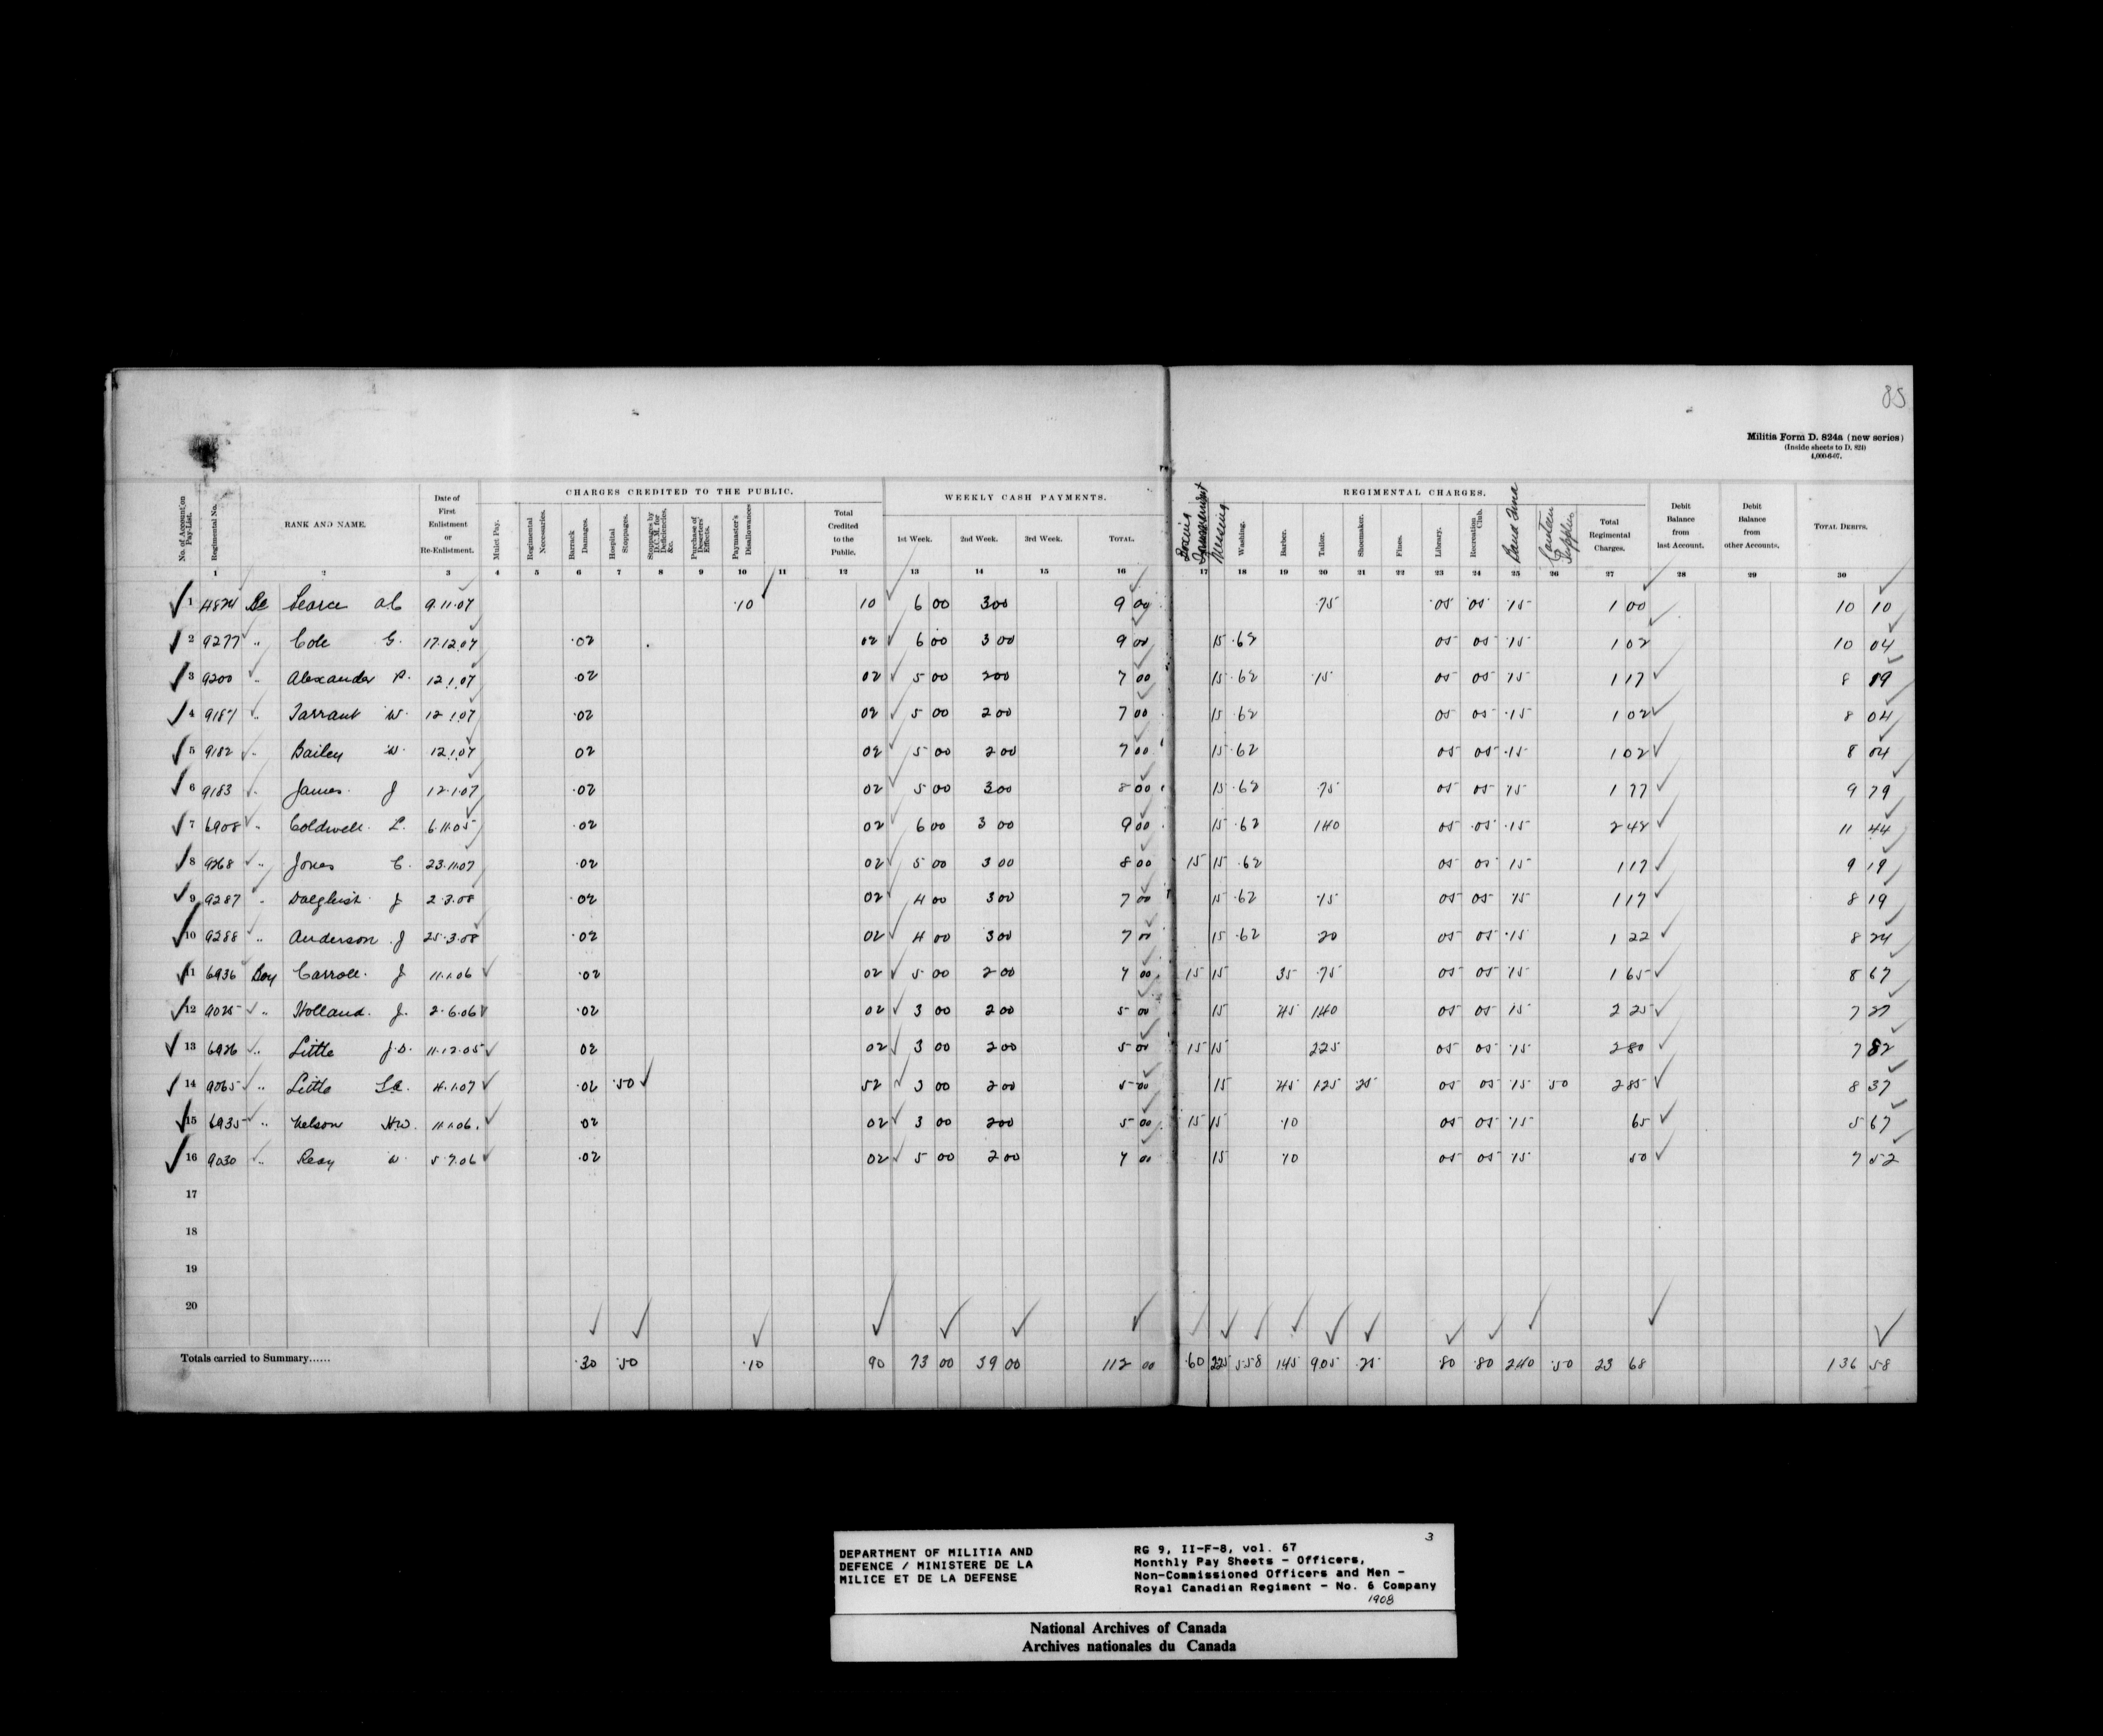 85
Militia Form D. 824a (new series)
(Inside sheets to D. 824)
4,000-6-07.
CHARGES CREDITED TO THE PUBLIC. WEEKLY CASH PAYMENTS. REGIMENTAL CHARGES.
No. of Account on Pay-List. Regimental No. RANK AND NAME. Date of First Enlistment or Re-Enlistment. Mulct Pay. Regimental Necessaries. Barrack Damages. Hospital Stoppages. Stoppages by D.C.M. for Deficiencies, &c. Purchase of Deserters' Effects. Paymaster's Disallowances Total Credited to the Public. 1st Week. 2nd Week. 3rd Week. TOTAL. Messing Washing. Barber. Tailor. Shoemaker. Fines. Library. Recreation Club. Band Fund Canteen Supplies Total Regimental Charges. Debit Balance from last Account. Debit Balance from other Accounts. TOTAL DEBITS.
1 2 3 4 5 6 7 8 9 10 11 12 13 14 15 16 17 18 19 20 21 22 23 24 25 26 27 28 29 30
1 4824 9.11.07 .10 10 6 00 3 00 9 00 .75 .05 .05 .15 1 00 10 10
2 9277 " Cole G. 17.12.07 .02 02 6 00 3 00 9 00 15 .62 05 05 .15 1 02 10 04
3 9200 " Alexander P. 12.1.07 .02 02 5 00 2 00 7 00 15 .62 .15 05 05 15 1 17 8 19
4 9187 " Tarrant W. 12.1.07 .02 02 5 00 2 00 7 00 15 .62 05 05 .15 1 02 8 04
5 9182 " Bailey W. 12.1.07 02 02 5 00 2 00 7 00 15 .62 05 05 .15 1 02 8 04
6 9183 " James J 12.1.07 .02 02 5 00 3 00 8 00 15 .62 .75 05 05 15 1 77 9 79
7 6908 " Coldwell L. 6.11.05 .02 02 6 00 3 00 9 00 15 .62 1 40 05 .05 .15 2 42 11 44
8 9268 " Jones C. 23.11.07 .02 02 5 00 3 00 8 00 15 15 .62 05 05 15 1 17 9 19
9 9287 " Dalgleish J 2.3.08 .02 02 4 00 3 00 7 00 15 .62 .15 05 05 15 1 17 8 19
10 9288 " Anderson J 25.3.08 .02 02 4 00 3 00 7 00 15 .62 .20 05 05 .15 1 22 8 24
11 6936 Boy Carroll J 11.1.06 .02 02 5 00 2 00 7 00 15 15 35 .75 05 05 15 1 65 8 67
12 9025 " Holland J. 2.6.06 .02 02 3 00 2 00 5 00 15 .45 1 40 05 05 15 2 25 7 27
13 6926 " Little J.D. 11.12.05 02 02 3 00 2 00 5 00 15 15 2 25 05 05 .15 2 80 7 82
14 9065 " Little 4.1.07 .02 .50 52 3 00 2 00 5 00 15 .45 1 25 .25 05 05 15 .50 2 85 8 37
15 6935 " Nelson H.W. 11.1.06. 02 02 3 00 2 00 5 00 15 15 .10 05 05 .15 65 5 67
16 9030 " Reay W. 5.7.06 .02 02 5 00 2 00 7 00 15 10 05 05 15 50 7 52
17
18
19
20
Totals carried to Summary...... .30 .50 .10 90 73 00 39 00 112 00 .60 2 25 5.58 1 45 9 05 .25 .80 .80 2 40 .50 23 68 136 58
3
DEPARTMENT OF MILITIA AND
DEFENCE / MINISTERE DE LA
MILICE ET DE LA DEFENSE
RG 9, II-F-8, vol. 67
Monthly Pay Sheets - Officers,
Non-Commissioned Officers and Men -
Royal Canadian Regiment - No. 6 Company
1908
National Archives of Canada
Archives nationales du Canada